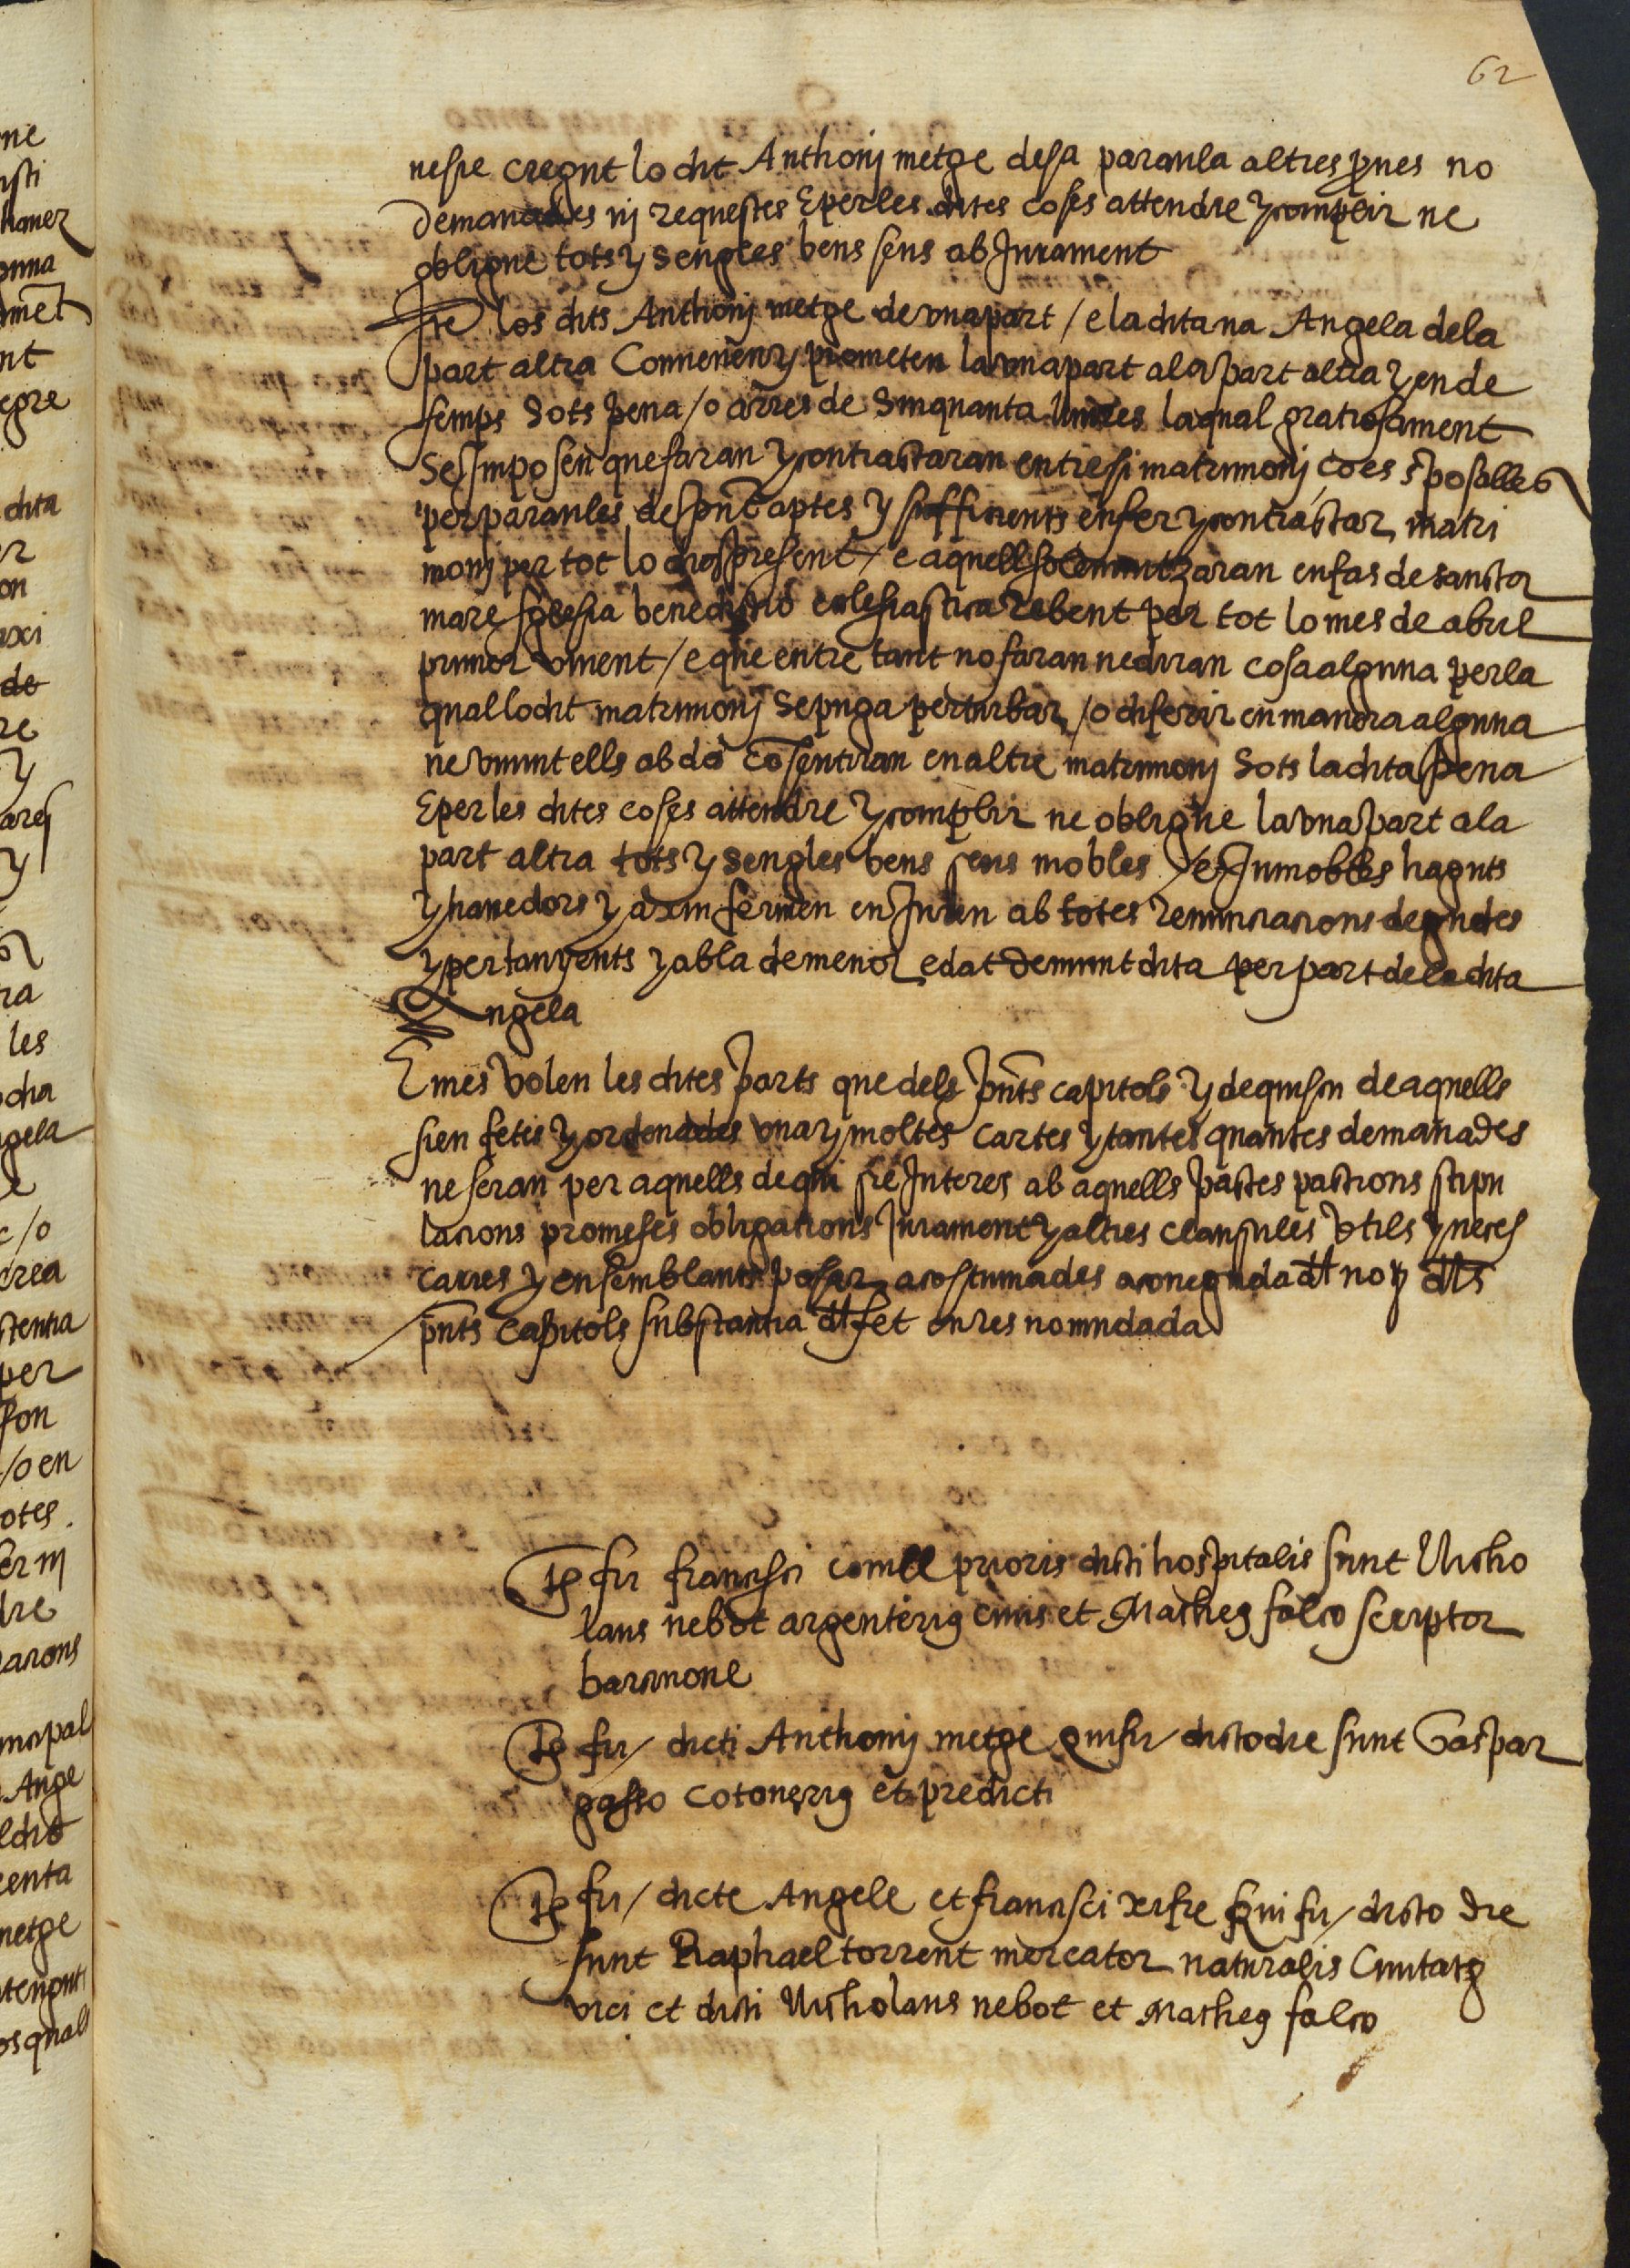 62
nesie cregut lo dit Anthonj metge de sa paraula altres pnes no
demanades nj requestes E per les dites coses attendre y complir ne
obligue tots y sengles bens seus ab Jurament
Ite los dits Anthonj metge de vna part / e la dita na Angela de la
part altra Conuenen y prometen la vna part a la part altra y en de
semps Sots pena / o arres de Sinquanta liures la qual gratiosament
Se Imposen que faran y contractaran entre si matrimonj ço es sposalles
per paraules de pnt aptes y sufficients en fer y contractar matri
monj per tot lo dia present / e aquell solemnitzaran en fas de sancta
mare sglesia benedictio eclesiastica rebent per tot lo mes de abril
primer vinent / e que entre tant no faran ne diran cosa alguna per la
qual lo dit matrimonj Se puga perturbar / o diferir en manera alguna
ne viuint ells abdos cosentiran en altre matrimonj Sots la dita pena
E per les dites coses attendre y complir ne obligue la vna part a la
part altra tots y sengles bens seus mobles / e Inmobles haguts
y hauedors y axin fermen en Juren ab totes renunciacions degudes
y pertanyents y ab la de menor edat demunt dita per part de la dita
Angela
E mes volen les dites parts que dels pnts capitols y dequiscu de aquells
sien fetes y ordenades vna y moltes cartes y tantes quantes demanades
ne seran per aquells de qui sie Interes ab aquells pactes pactions stipu
lacions promeses obligations Jurament y altres clausules vtils y neces
caries y en semblants posar acostumades aconeguda dl not dls
pnts capitols substantia dl fet en res no mudada
Ts fir francisci comell prioris dicti hospitalis sunt Nicho
laus nebot argenterig ciuis et Matheg falco scriptor
barcinone
Ts fir / dicti Anthonij metge qui fir / dicto die sunt Gaspar
gasso cotonerig et predicti
Ts fir / dicte Angele et francisci xifre qui fir / dicto die
sunt Raphael torrent mercator naturalis Ciuitatg
vici et dicti Nicholaus nebot et Matheg falco